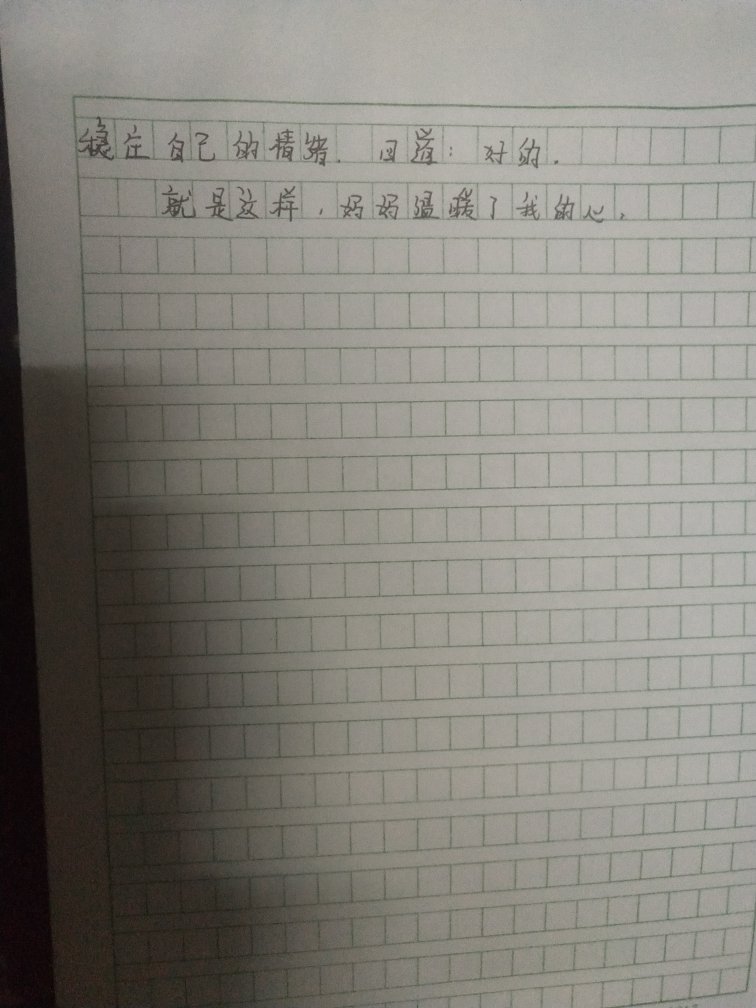 稳定自己的情绪.回道:好的.
就是这样,妈妈温暖了我的心,